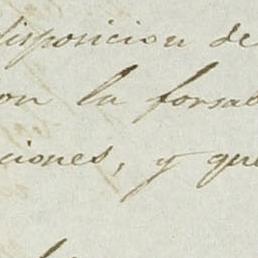 disposicion de
on la forsa
ciones, y que